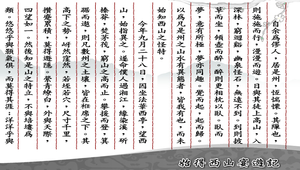 自余為僇人，居是州，恆惴慄。其隟也，
則施施而行，漫漫而遊。日與其徒上高山，入
深林，窮迴谿，幽泉怪石，無遠不到。到則披
草而坐，傾壺而醉。醉則更相枕以臥，臥而
夢。意有所極，夢亦同趣。覺而起，起而歸。
以為凡是州之山水有異態者，皆我有也，而未
始知西山之怪特。
今年九月二十八日，因坐法華西亭，望西
山，始指異之。遂命僕人過湘江，緣染溪，斫
榛莽，焚茅茷，窮山之高而止。攀援而登，箕
踞而遨，則凡數州之土壤，皆在衽席之下。其
高下之勢，岈然窪然，若垤若穴，尺寸千里，
攢蹙累積，莫得遯隱。縈青繚白，外與天際，
四望如一。然後知是山之特立，不與培塿為
類，悠悠乎與顥氣俱，而莫得其涯；洋洋乎與
始得西山宴遊記